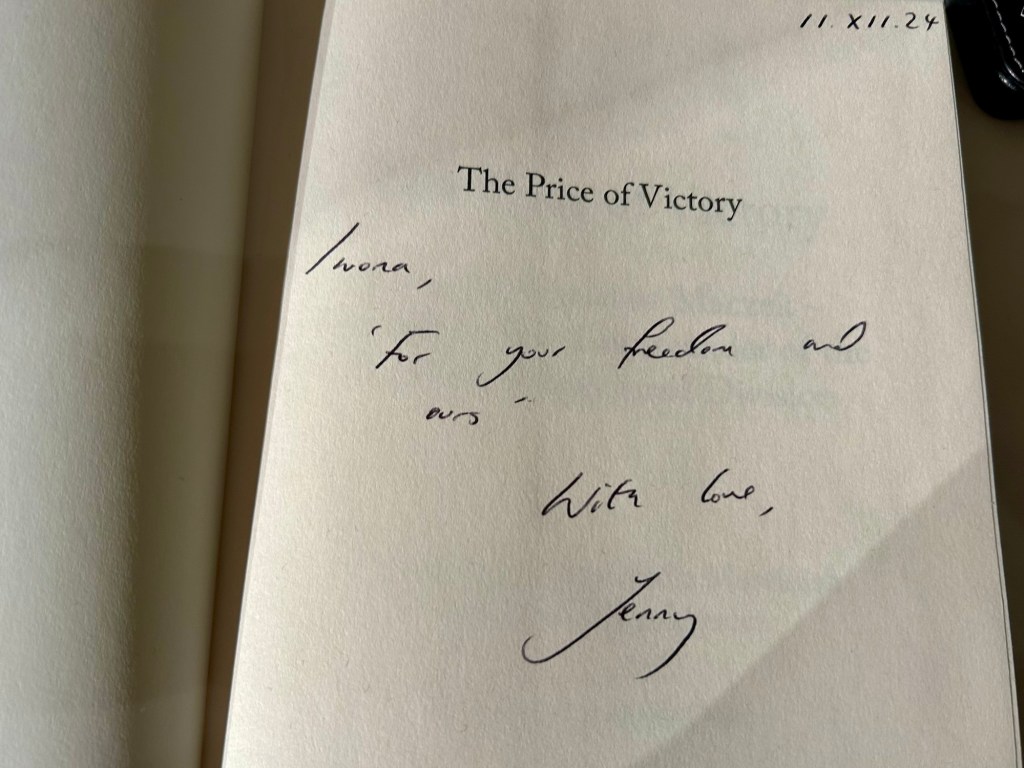 11.XII.24
The Price of Victory
Iwona,
'For your freedom and
ours'
With love,
Jenny